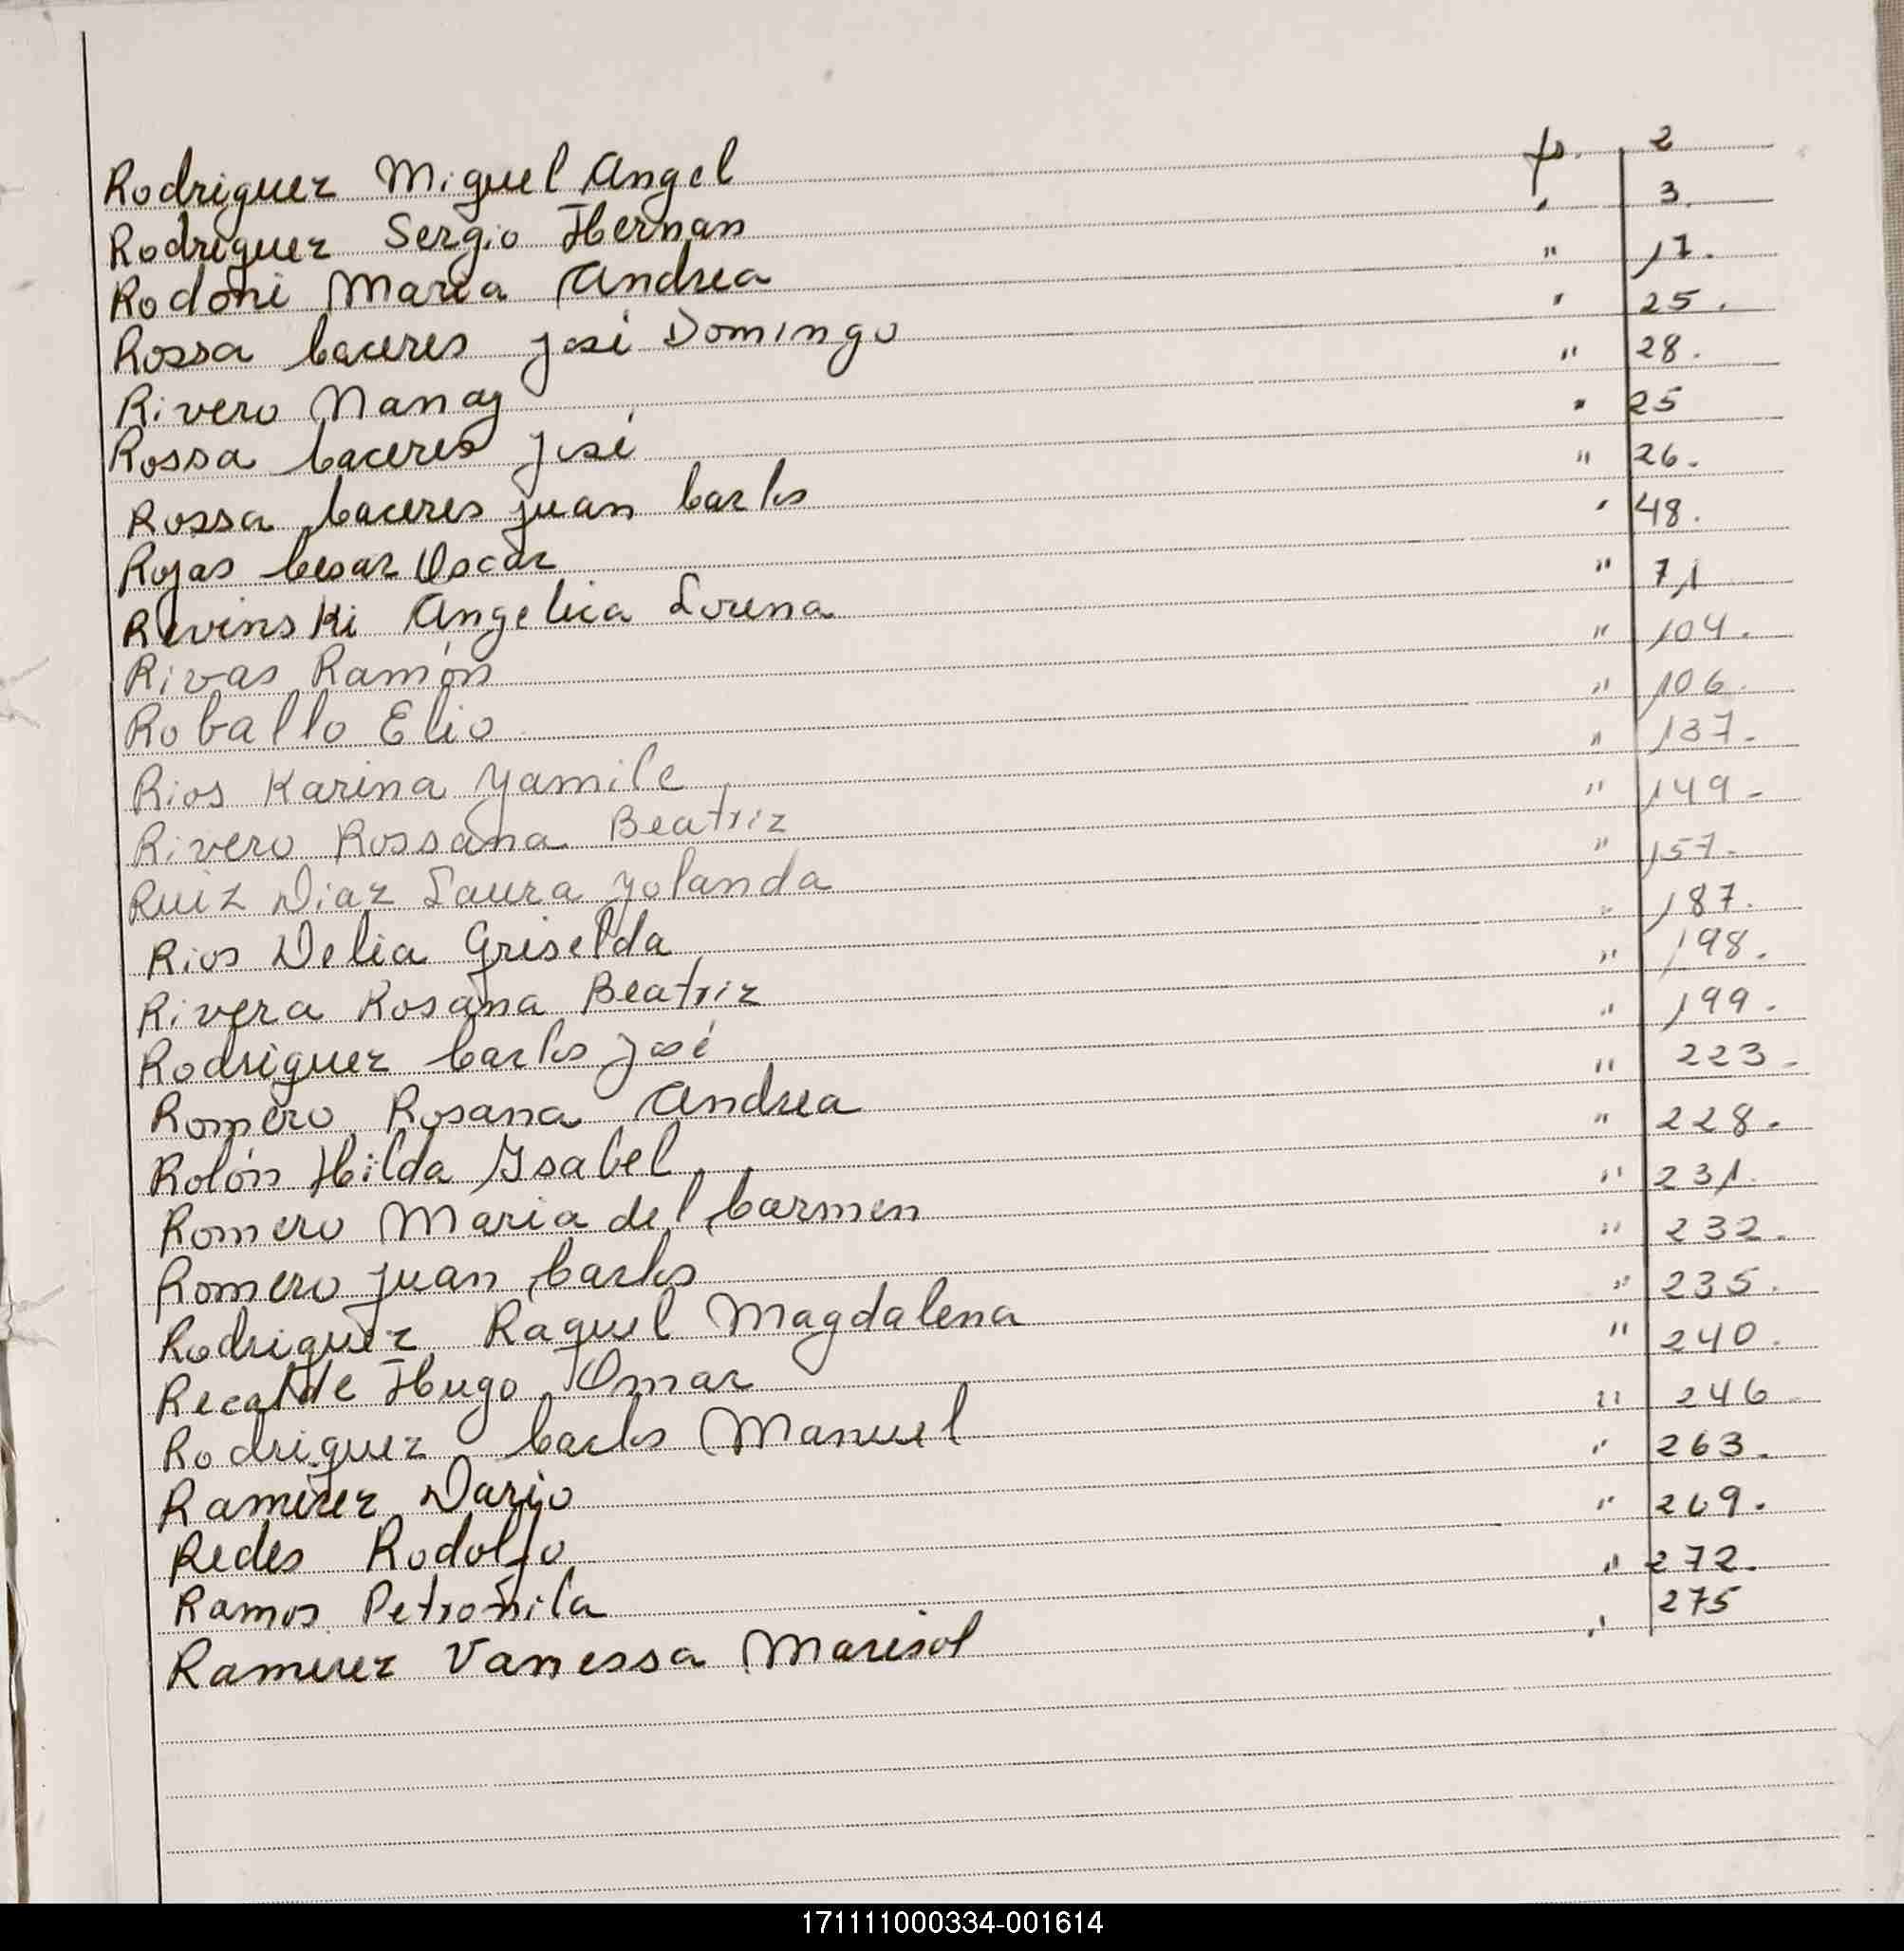 Rodriguez Miguel Angel fo. 2
Rodriguez Sergio Hernan " 3.
Rodoni Maria Andrea " 17.
Rossa Caceres José Domingo " 25.
Rivero Nancy " 28.
Rossa Caceres José " 25
Rossa Caceres Juan Carlos " 26.
Rojas Cesar Oscar " 48.
Revinski Angelica Lorena " 71
Rivas Ramón " 104.
Roballo Elio " 106.
Rios Karina Yamile " 137.
Rivero Rossana Beatriz " 149.
Ruiz Diaz Laura Yolanda " 157.
Rios Delia Griselda " 187.
Rivera Rosana Beatriz " 198.
Rodriguez Carlos José " 199.
Romero Rosana Andrea " 223.
Rolón Hilda Ysabel " 228.
Romero Maria del Carmen " 231.
Romero Juan Carlos " 232.
Rodriguez Raquel Magdalena " 235.
Recalde Hugo Omar " 240.
Rodriguez Carlos Manuel " 246
Ramirez Dario " 263.
Redes Rodolfo " 269.
Ramos Petronila " 272.
Ramirez Vanessa Marisol " 275
171111000334-001614